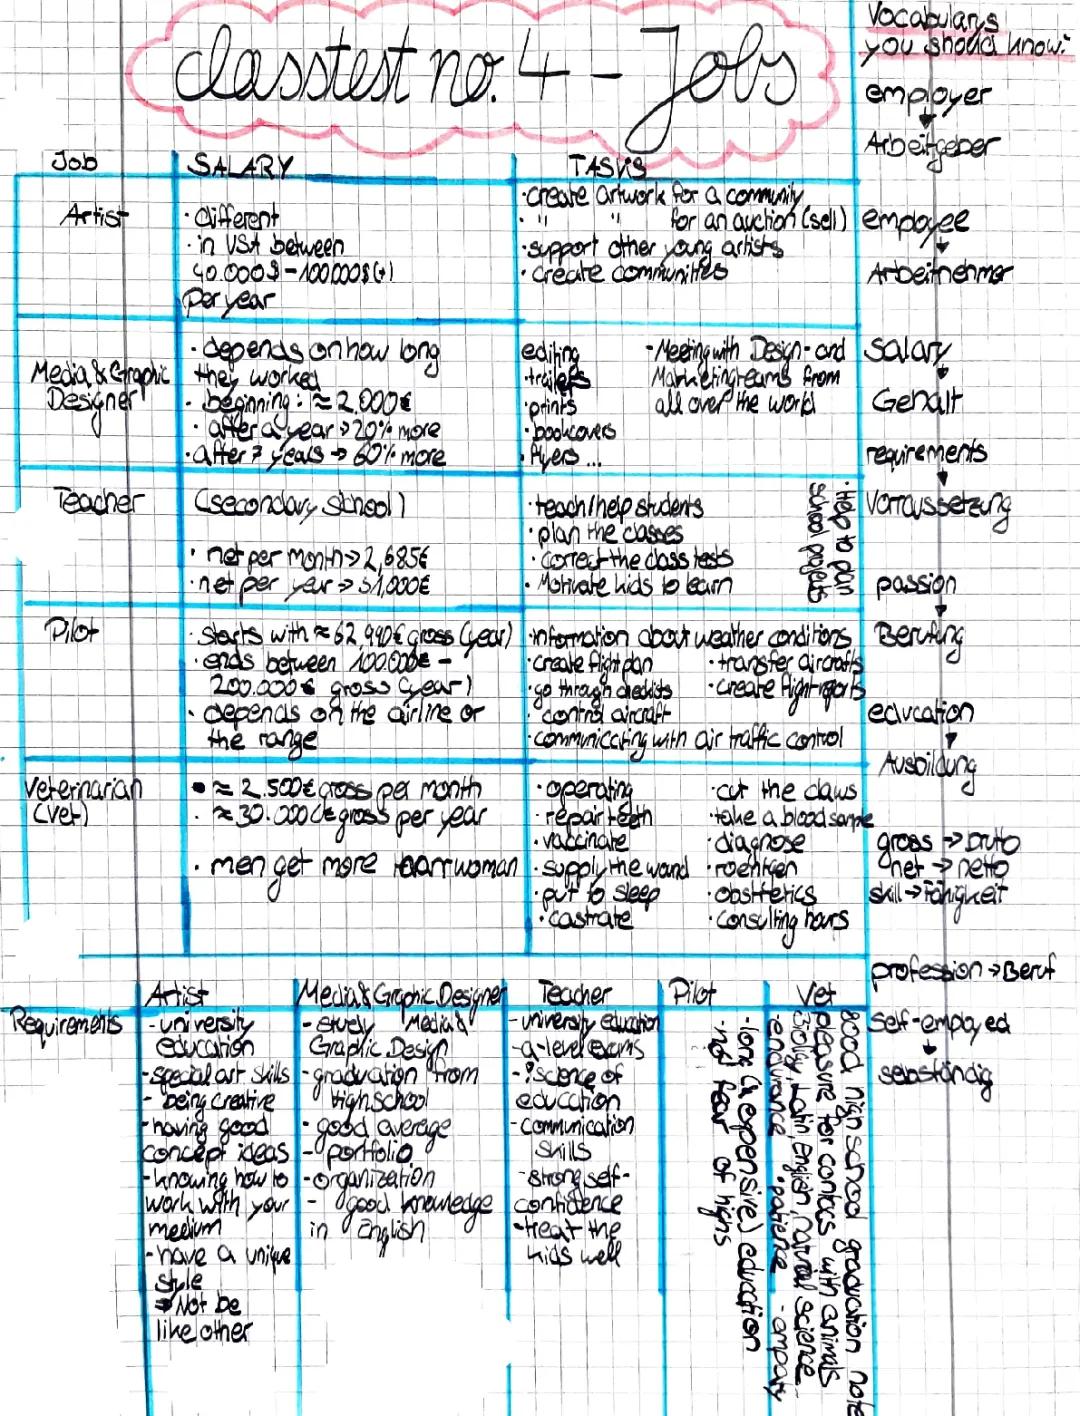 classtest no. 4 - Jobs
Job
SALARY
TASKS
Artist
· different
· in USA between
40.000$ - 100.000$(+)
per year
· create artwork for a community
· " " for an auction (sell)
· support other young artists
· create communities
Media & Graphic
Designer
· depends on how long
they worked
· beginning: ≈ 2.000€
· after a year → 20% more
· after 7 years → 60% more
editing
· trailers
· prints
· bookcovers
· flyers ...
- Meeting with Design- and
Marketingteams from
all over the world
Teacher
(secondary school)
· net per month → 2,685€
· net per year → 31,000€
· teach/help students
· plan the classes
· correct the class tests
· Motivate kids to learn
· Help to plan
school projects
Pilot
· starts with ≈ 62,990€ gross (year)
· ends between 100.000€ -
200.000€ gross (year)
· depends on the airline or
the range
· information about weather conditions
· create flight plan
· go through checklists
· control aircraft
· communicating with air traffic control
· transfer aircrafts
· create flight reports
Veterinarian
(Vet)
· ≈ 2.500€ gross per month
· ≈ 30.000€ gross per year
· men get more than woman
· operating
· repair teeth
· vaccinate
· supply the wand
· put to sleep
· castrate
· cut the claws
· take a blood sample
· diagnose
· roentgen
· obstetrics
· consulting hours
Requirements
Artist
- university
education
- special art skills
- being creative
- having good
concept ideas
- knowing how to
work with your
medium
- have a unique
style
⇒ Not be
like other
Media & Graphic Designer
- study "Media &
Graphic Design"
- graduation from
Highschool
- good average
- portfolio
- organization
- good knowledge
in English
Teacher
- university education
- a-level exams
- science of
education
- communication
skills
- strong self-
confidence
- treat the
kids well
Pilot
- long (& expensive) education
- not fear of highs
Vet
good high school graduation note
pleasure for contacs with animals
Biology, Latin, English, natural science
- endurance · patience - empaty
Vocabularys
you should know:
employer
↓
Arbeitgeber
employee
↓
Arbeitnehmer
salary
↓
Gehalt
requirements
↓
Vorraussetzung
passion
↓
Berufung
education
↓
Ausbildung
gross → bruto
net → netto
skill → Fähigkeit
profession → Beruf
self-employed
↓
sebständig